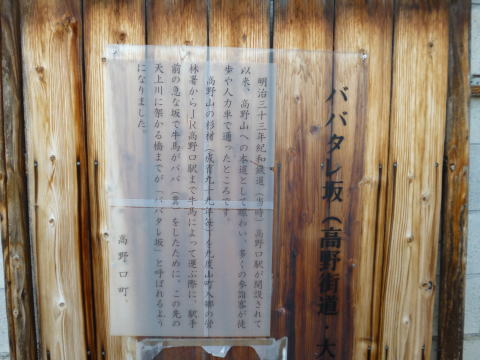 ババタレ坂(高野街道・大
明治三十三年紀和鐵道(当時)高野口駅が開設されて
以来、高野山への本道として賑わい、多くの参詣客が徒
歩や人力車で通ったところです。
高野山の杉材(成育九十九年祭)を九度山町入郷の営
林署からJR高野口駅まで牛馬によって運ぶ際に、駅手
前の急な坂で牛馬がババ(糞)をしたために、この先の
天上川に架かる橋までが、「ババタレ坂」と呼ばれるよう
になりました。
高野口町。